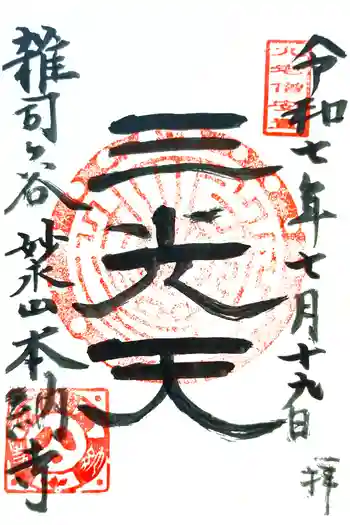 令和七年七月十九日
拝
三光天
雑司ヶ谷 妙永山 本納寺